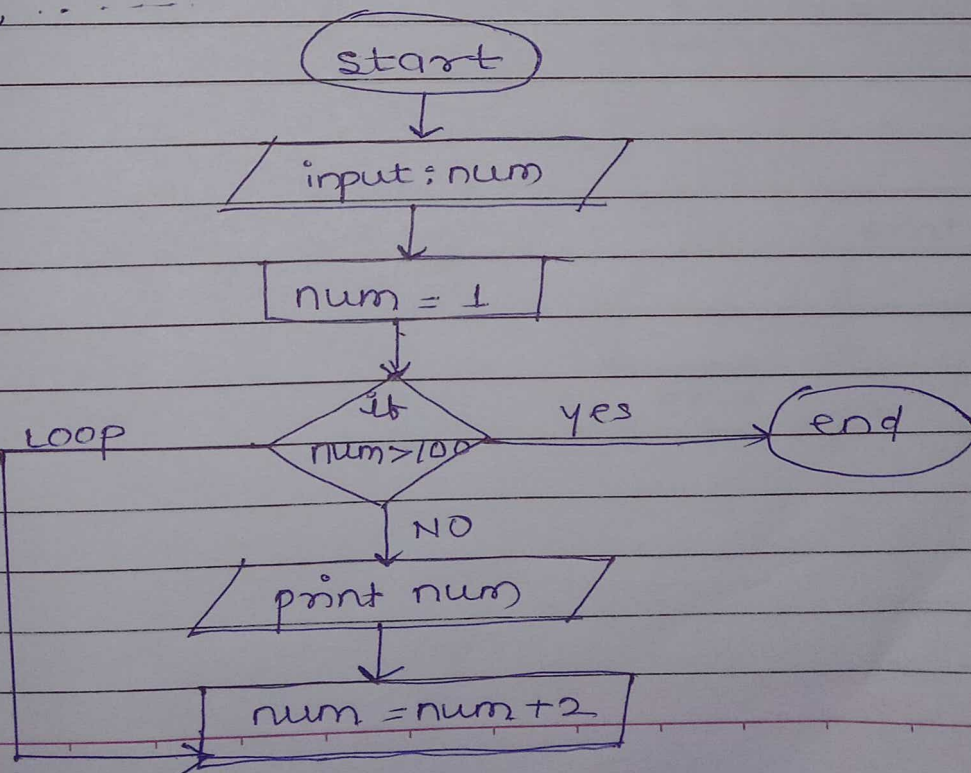 start
input : num
num = 1
if
num>100
yes
end
LOOP
NO
print num
num = num + 2